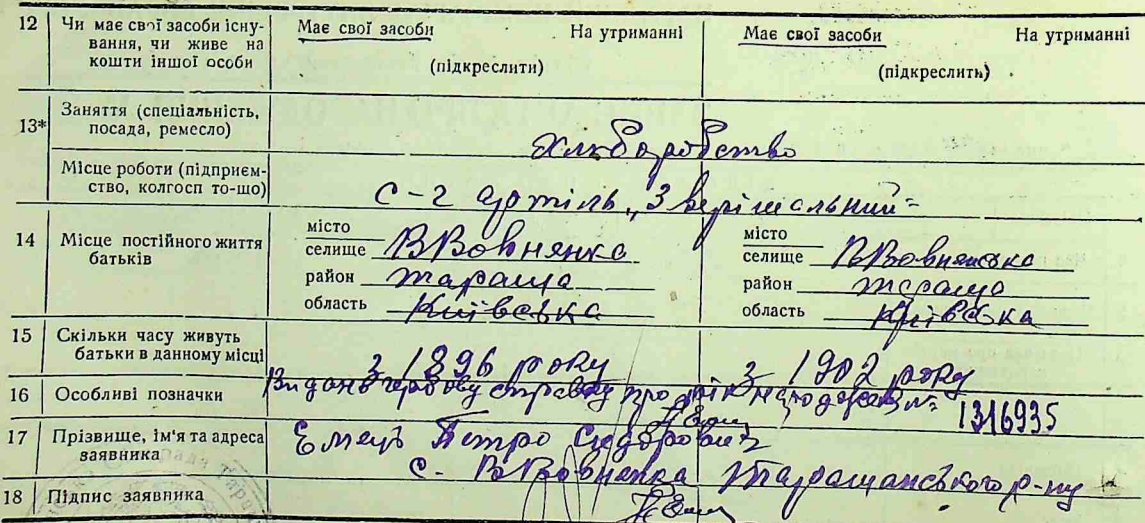 12 Чи має свої засоби існу-
вання, чи живе на
кошти іншої особи
Має свої засоби На утриманні
(підкреслити)
Має свої засоби На утриманні
(підкреслить)
13* Заняття (спеціальність,
посада, ремесло)
Хліборобство
Місце роботи (підприєм-
ство, колгосп то-що)
с-г артіль „3 вирішальний"
14 Місце постійного життя
батьків
місто
селище ВВовнянка
район Тараща
область Київська
місто
селище ВВовнянська
район Тараща
область Київська
15 Скільки часу живуть
батьки в данному місці
з 1896 року
з 1902 року
16 Особливі позначки
Видано гербову справку про рік № 1316935
17 Прізвище, ім'я та адреса
заявника
Ємець Петро Сидорович
с. ВВовнянка Таращанського р-ну
18 Підпис заявника